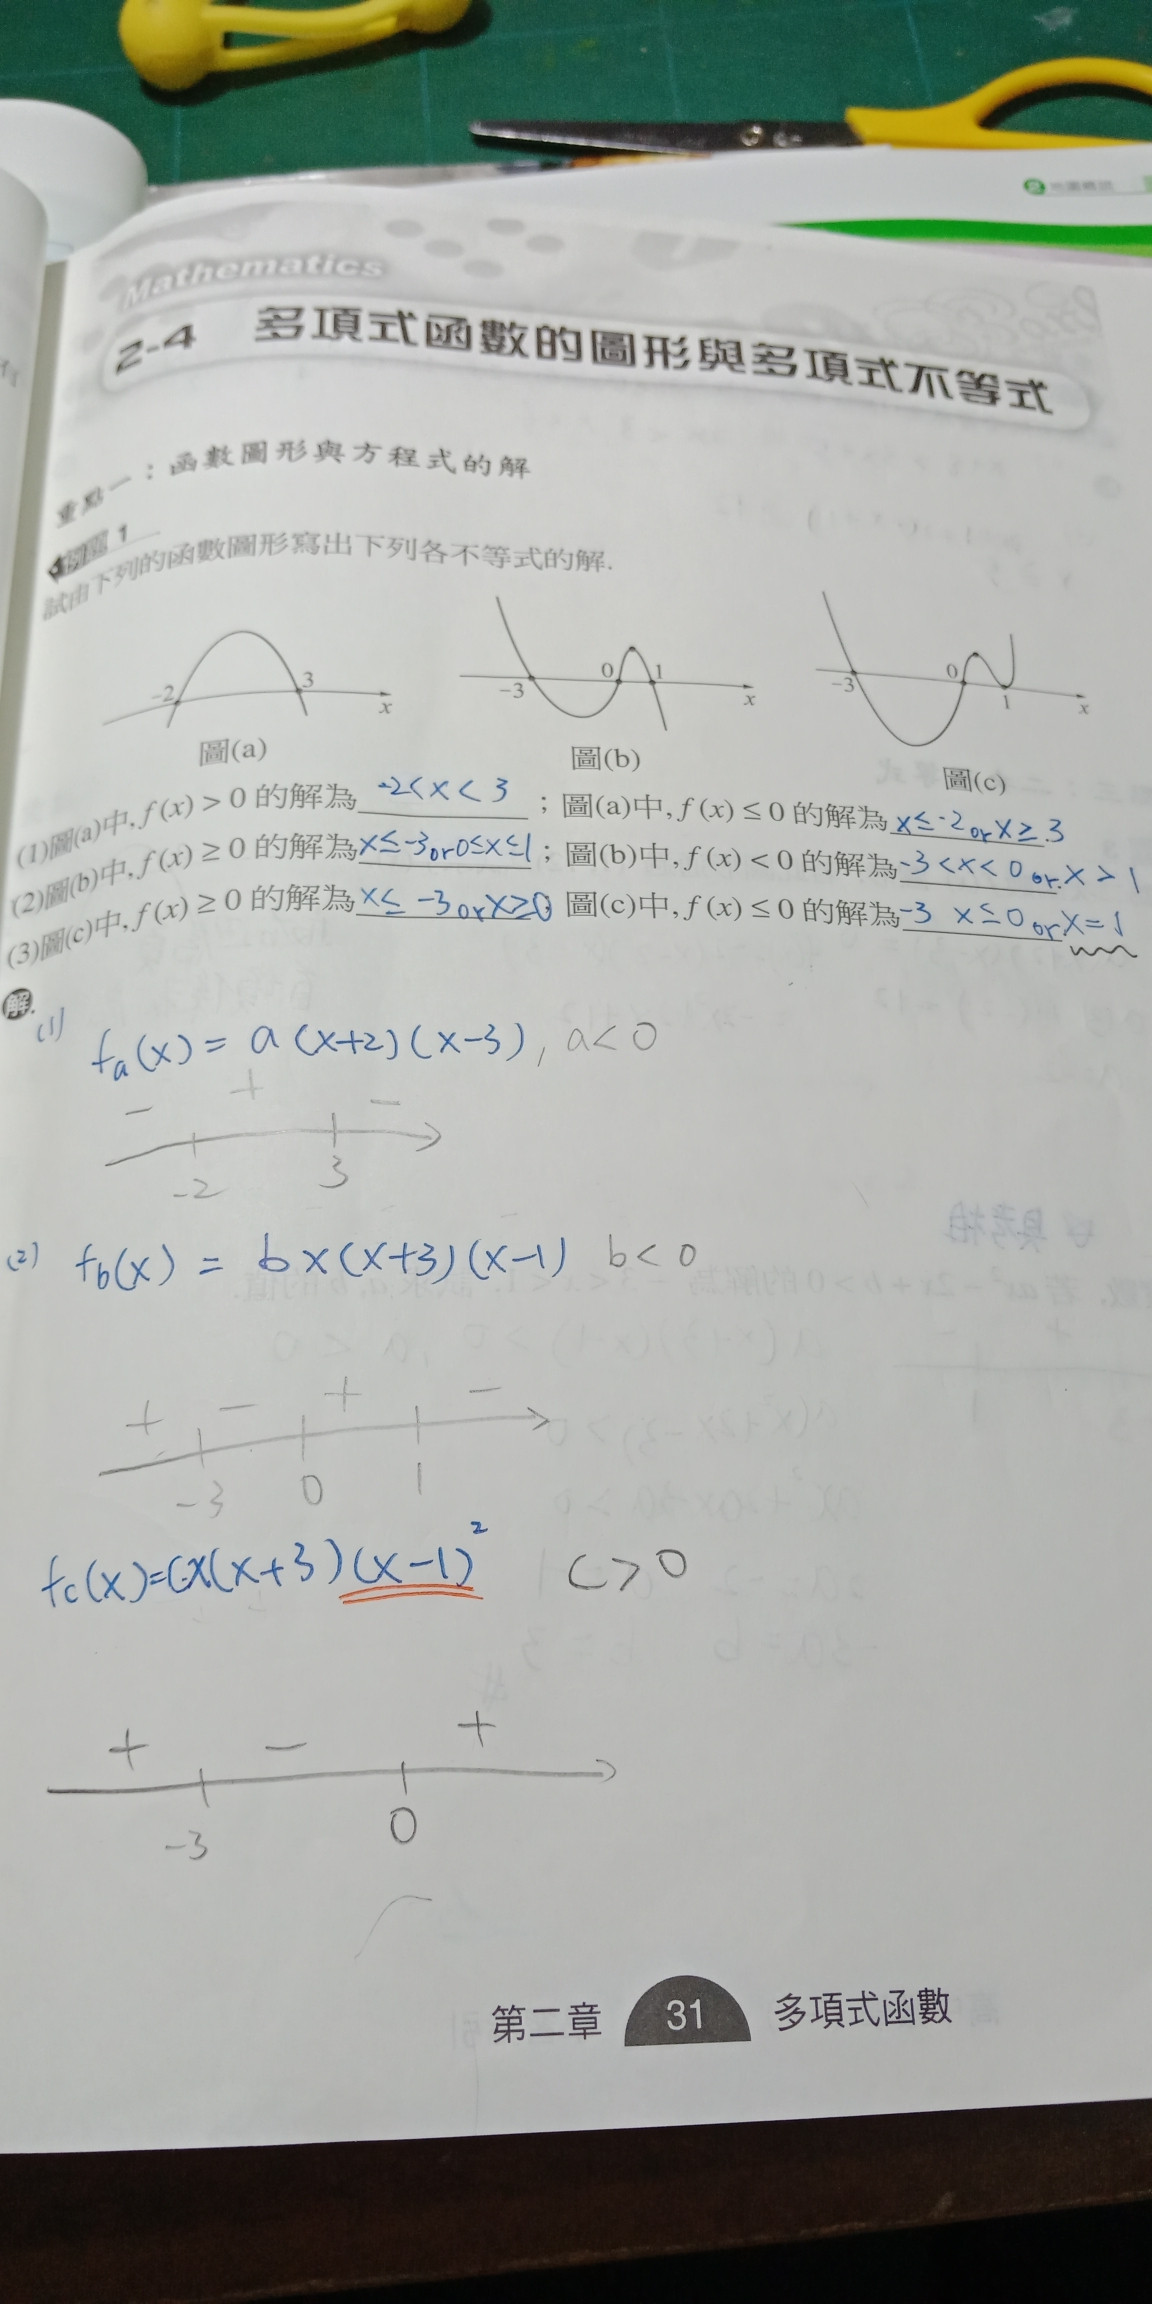 Mathematics
2-4 多項式函數的圖形與多項式不等式
重點一：函數圖形與方程式的解
例題 1
試由下列的函數圖形寫出下列各不等式的解.
-2 3 x
-3 0 1 x
-3 0 1 x
圖(a)
圖(b)
圖(c)
(1)圖(a)中, f(x) > 0 的解為 -2< x < 3 ；圖(a)中, f(x) ≤ 0 的解為 x ≤ -2 or x ≥ 3
(2)圖(b)中, f(x) ≥ 0 的解為 x ≤ -3 or 0≤x≤1；圖(b)中, f(x) < 0 的解為 -3 < x < 0 or x > 1
(3)圖(c)中, f(x) ≥ 0 的解為 x ≤ -3 or x≥0 圖(c)中, f(x) ≤ 0 的解為 -3 x ≤ 0 or x = 1
解.
(1)
fa(x) = a (x+2)(x-3), a<0
- + -
-2 3
(2) fb(x) = b x (x+3)(x-1) b<0
+ - + -
-3 0 1
fc(x)=cx(x+3)(x-1)² c>0
+ - +
-3 0
第二章 31 多項式函數